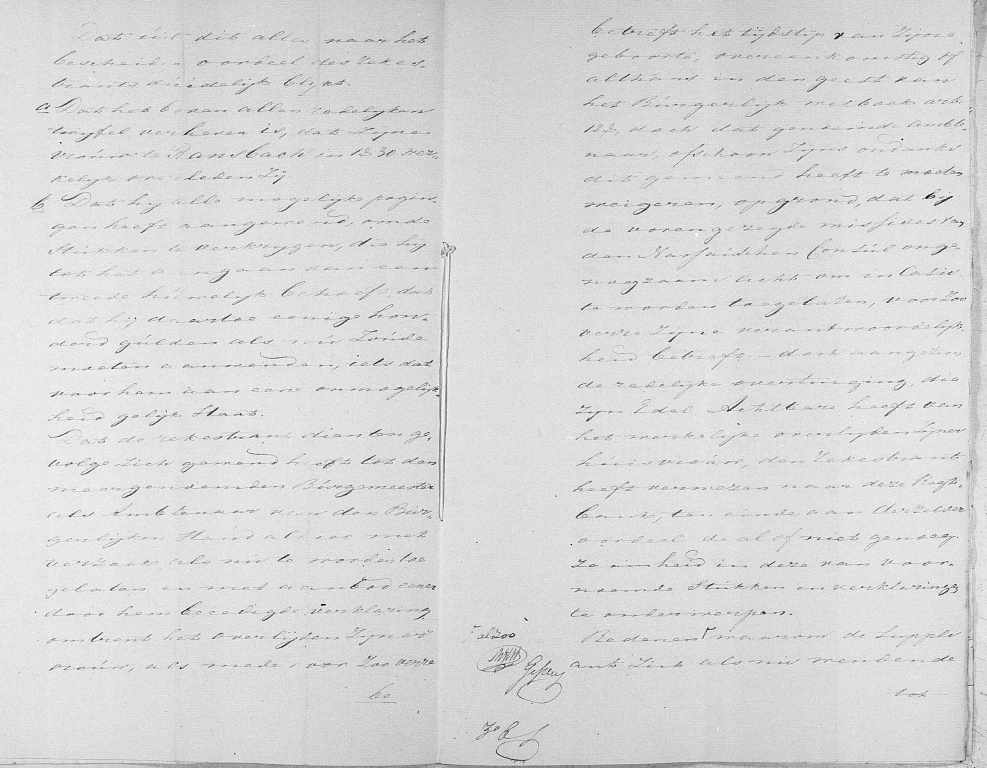 Dat uit dit alles naar het
bescheid oordeel des rekes-
trants duidelijk blijkt.
a Dat het boven allen redelyken
twyfel verheven is, dat zyne
vrouw te Ransbach in 1830 wer-
kelyk overleden zij
b Dat hij alle mogelijke pogin-
gen heeft aangewend, om de
Stukken te verkrygen, die hij
tot het aangaan van een
tweede huwelijk behoeft: dat
dat hij daartoe eenige hon-
derd gulden als nu zoude
moeten aanwenden, iets dat
voor hem aan eene onmogelijk-
heid gelijk staat.
Dat de rekestrant dien ten ge-
volge zich gewend heeft tot den
meergenoemden Burgemeester
als Ambtenaar van den Bur-
gerlijken Stand alhier met
verzoek als nu te worden toe
gelaten en met aanbod eener
door hem beeedigde verklaring
omtrent het overlijden zyner
vrouw, als mede voor zoo verre
be
betreft het tijdstip van zijne
geboorte, overeenkomstig of
althans in den geest van
het Burgerlijk wetboek art:
122, doch dat genoemde Ambte-
naar, ofschoon zijns ondanks
dit gemeend heeft te moeten
weigeren, op grond, dat by
de voren gezegde missives van
den Nassauischen Consul ong-
noegzaam licht om in Casu
te worden toegelaten, voor zoo
verre zyne verantwoordelijk-
heid betreft – doch aangezien
de redelijke overtuiging, die
zijn Edel Achtbare heeft van
het werkelijke overlyden zyner
huisvrouw, den rekestrant
heeft verwezen naar deze Regt-
bank, ten einde aan derzelver
oordeel de al of niet genoeg-
zaamheid in deze van voor-
noemde Stukken en verklaring
te onderwerpen.
Redenen waarom de Supplt
ant zich als nu wendende
tot